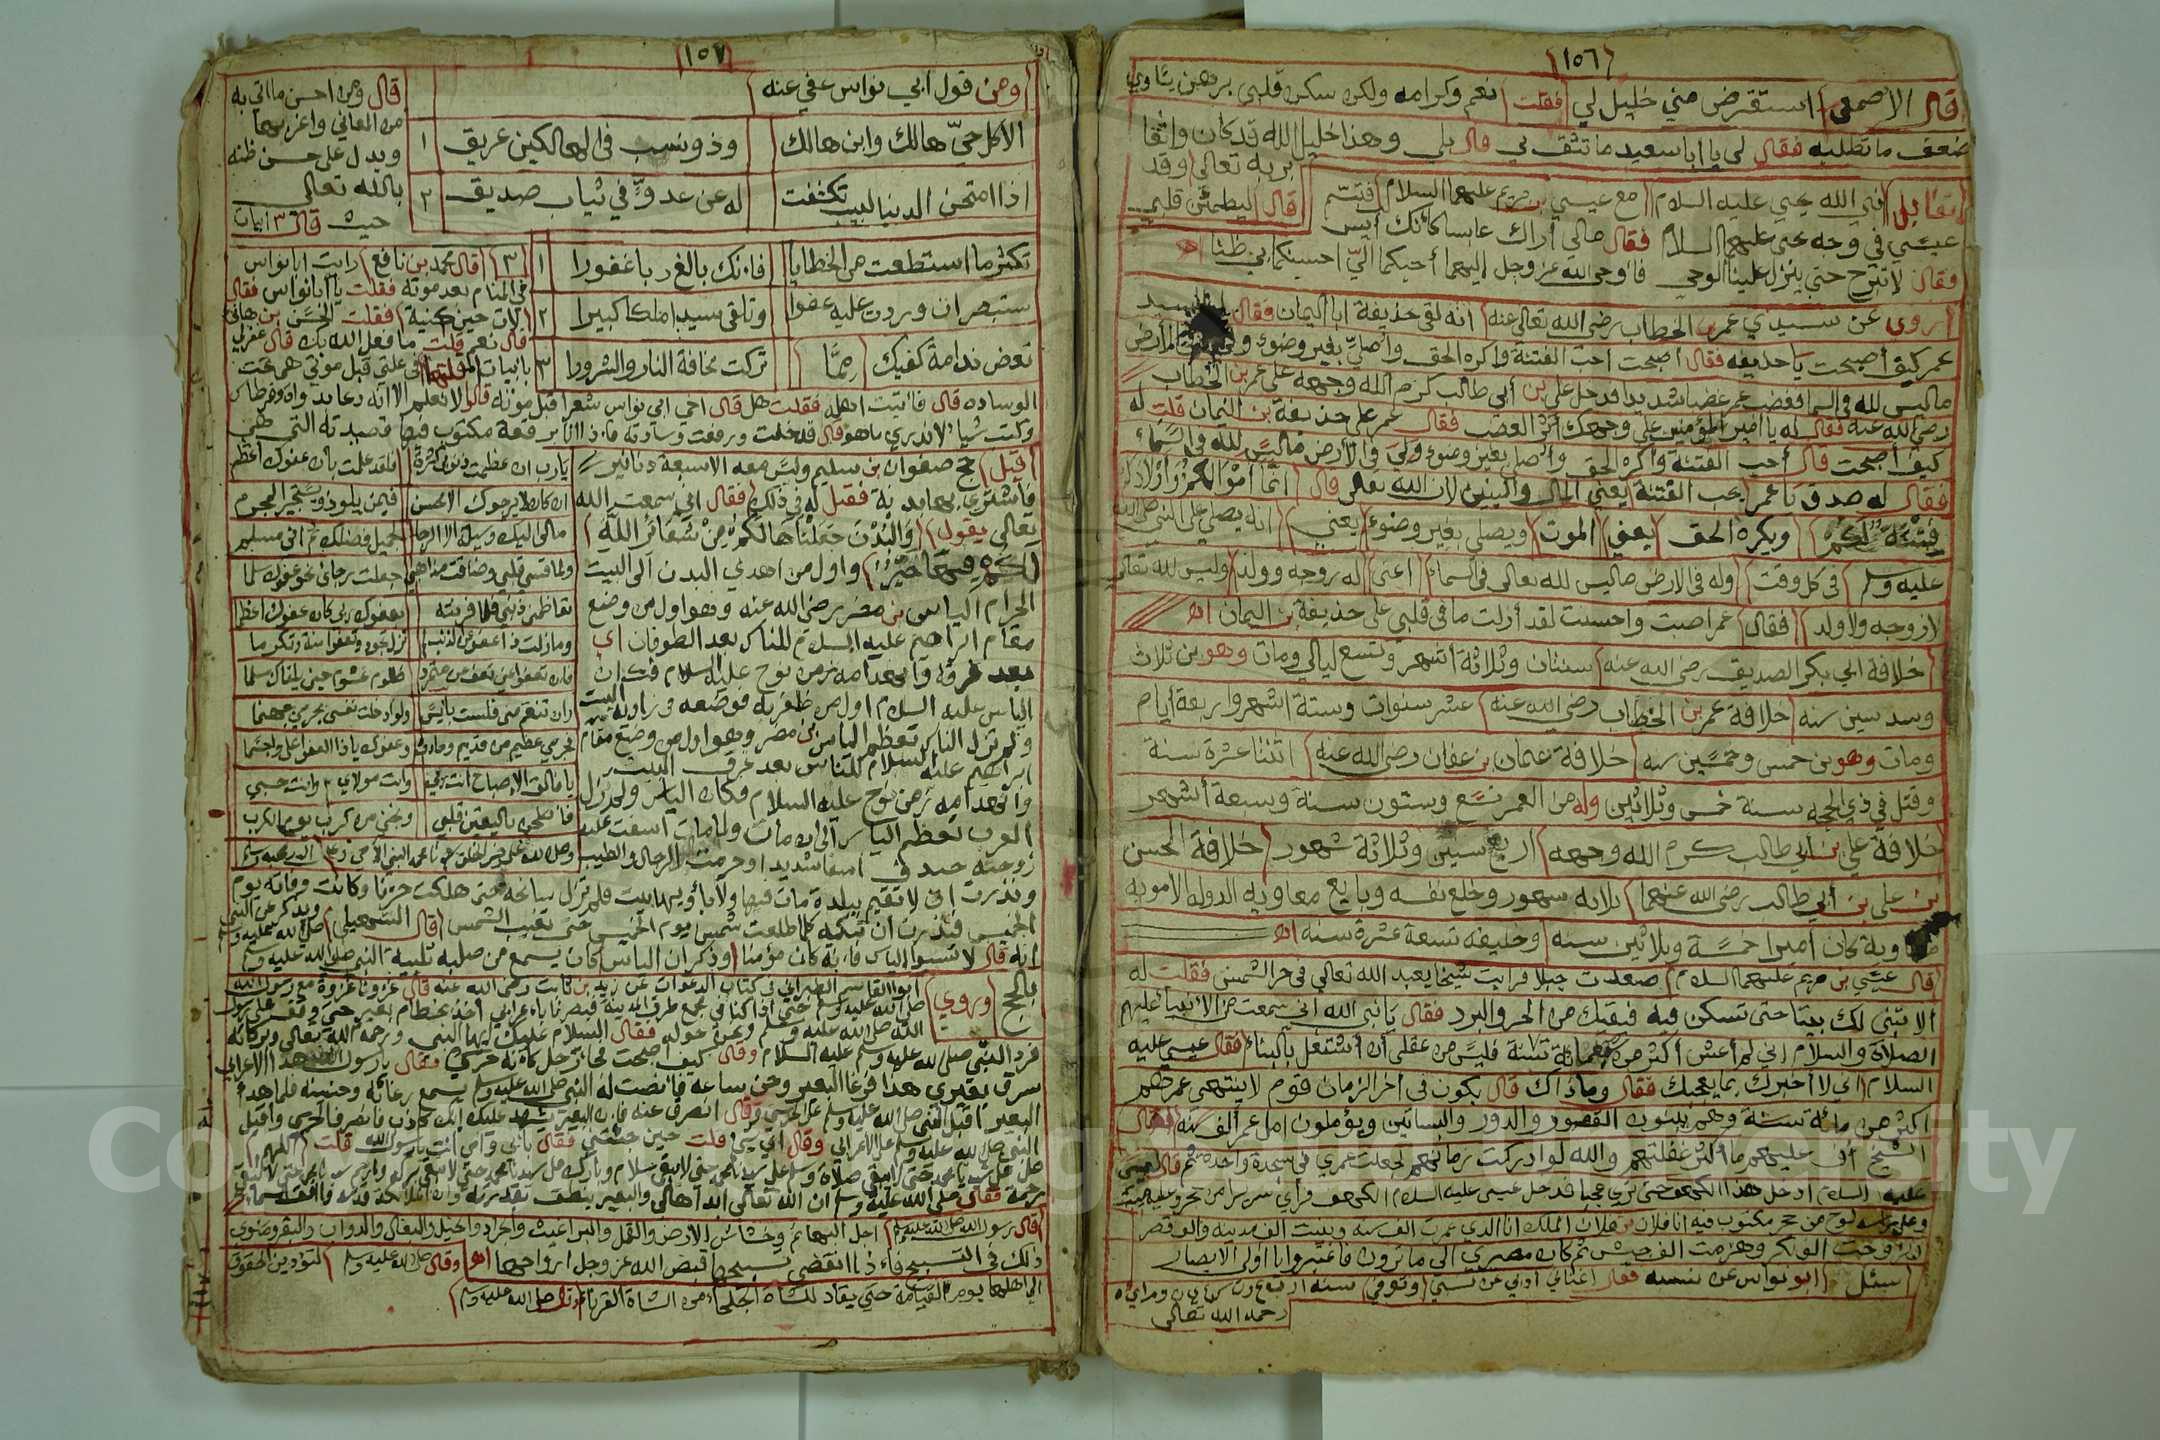 ١٥٦
قال الاصمعي استقرض مني خليل لي فقلت نعم وكرامه ولكن سكن قلبي برهن يساوي
ضعف ما تطلبه فقال لي يا ابا سعيد ما تثق بي قال بلي وهذا خليل الله قد كان واثقا
بربه تعالى وقد
قال ليطمئن قلبي
تقابل نبي الله يحيى عليه السلام مع عيسى بن مريم عليهما السلام فتبسم
عيسى في وجه يحيى عليهما السلام فقال مالي أراك عابسا كأنك أيس
فقال لا تبرح حتى ينزل علينا الوحي فاوحى الله عز وجل اليهما أحبكما اليّ احسنكما بي ظنا اه
روى عن سيدي عمر بن الخطاب رضي الله تعالى عنه انه لقى حذيفة ابا اليمان فقال سيد
عمر كيف أصبحت يا حذيفه فقال اصبحت احب الفتنة واكره الحق واصلي بغير وضوء ولي في الارض
ماليس لله في السما فغضب عمر غضبا شديدا فدخل علي بن أبي طالب كرم الله وجهه على عمر بن الخطاب
رضي الله عنه فقال له يا أمير المؤمنين على وجهك أثر الغضب فقال عمر على حذيفة بن اليمان قلت له
كيف أصبحت قال أحب الفتنة وأكره الحق وأصلي بغير وضوء ولي في الارض ماليس لله في السماء
فقال له صدق يا عمر يحب الفتنة يعني المال والبنين لان الله تعالى قال انما أموالكم وأولادكم
فتنة لكم ويكره الحق يعني الموت ويصلي بغير وضوء يعني انه يصلي على النبي صلى الله
عليه وسلم في كل وقت وله في الارض ماليس لله تعالى في السماء اعني له زوجه وولد وليس لله تعالى
لا زوجه ولا ولد فقال عمر اصبت واحسنت لقد أزلت ما في قلبي على حذيفة بن اليمان اه
خلافة ابي بكر الصديق رضي الله عنه سنتان وثلاثة أشهر وتسع ليالي ومات وهو بن ثلاث
وسد سين سنه خلافة عمر بن الخطاب رضي الله عنه عشر سنوات وستة اشهر واربعة أيام
ومات وهو بن خمس وخمسين سنه خلافة عثمان بن عفان رضي الله عنه اثنتا عشرة سنة
وقتل في ذي الحجه سنة خمس وثلاثين وله من العمر تسع وستون سنة وسبعة أشهر
خلافة علي بن أبي طالب كرم الله وجهه اربع سنين وثلاثة شهور خلافة الحسن
بن علي بن أبي طالب رضي الله عنهما ثلاثه شهور وخلع نفسه وبايع معاويه الدولة الامويه
معاوية كان أميرا خمسة وثلاثين سنه وخليفه تسعة عشرة سنه اه
قال عيسى بن مريم عليهما السلام صعدت جبلا فرأيت شيخا يعبد الله تعالى في حر الشمس فقلت له
ألا تبني لك بيتا حتى تسكن فيه فيقيك من الحر والبرد فقال يا نبي الله اني سمعت من الانبياء عليهم
الصلاة والسلام اني لم أعش أكثر من سنة فليس من عقلي أن أشتغل بالبناء فقال عيسى عليه
السلام اني لا اخبرك بما يعجبك فقال وماذاك قال يكون في اخر الزمان قوم لا ينتهي عمرهم
اكثر من مائة سنة وهم يبنون القصور والدور والبساتين ويؤملون امل عمر ألف سنه فقال
الشيخ أف عليهم ما اكثر غفلتهم والله لو ادركت زمانهم لجعلت عمري في سجدة واحدة ثم قال لعيسى
عليه السلام ادخل هذا الكهف حتى ترى عجبا فدخل عيسى عليه السلام الكهف فرأي سريرا من حجر وعليه ميت
وعلى رأسه لوح من حجر مكتوب فيه انا فلان بن فلان الملك انا الذي عمرت الف سنه وبنيت الف مدينه والف قصر
وتزوجت الف بكر وهزمت الف جيش ثم كان مصيري الى ما ترون فاعتبروا يا اولى الابصار
سئل ابو نواس عن نسبه فقال اغناني ادبي عن نسبي وتوفي سنه
رحمه الله تعالى
١٥٧
ومن قول ابي نواس عفي عنه
الا كل حيّ هالك وابن هالك وذو نسب في الهالكين عريق ١
اذا امتحن الدنيا لبيب تكشفت له عن عدوٍّ في ثياب صديق ٢
قال ومن احسن ما اتي به
من المعاني واغربهما
ويدل على حسن ظنه
بالله تعالى
حيث قال ٣ ابيات
تكثر ما استطعت من الخطايا فانك بالغ ربا غفورا ١
ستبصر ان وردت عليه عفوا وتلقى سيدا ملكا كبيرا ٢
تعض ندامة كفيك مما تركت مخافة النار والشرورا ٣
قال محمد بن نافع رايت ابا نواس
في المنام بعد موته فقلت يا أبا نواس فقال
لات حين كنية فقلت الحسن بن هاني
قال نعم قلت ما فعل الله بك قال غفر لي
بابيات قلتها في علتي قبل موتي هي تحت
الوساده قال فاتيت اهله فقلت هل قال اخي ابي نواس شعرا قبل موته قالوا لا نعلم الا انه دعا بدواة وقرطاس
وكتب شيا لاندري ماهو قال قد خلت ورفعت وسادته فاذا انا برقعة مكتوب فيها قصيدته التي هي
يا رب ان عظمت ذنوبي كثرة فلقد علمت بأن عفوك اعظم
ان كان لا يرجوك الا محسن فبمن يلوذ ويستجير المجرم
مالي اليك وسيلة الا الرجا وجميل فضلك ثم اني مسلم
ولما قسى قلبي وضاقت مذاهبي جعلت رجائي نحو عفوك سلما
تعاظمني ذنبي فلما قرنته بعفوك ربي كان عفوك اعظما
ومازلت ذا عفو عن الذنب لم تزل تجود وتعفو منة وتكرما
فان تعف عني تعف عن متمرد ظلوم غشوم حين يلقاك مسلما
وان تنتقم مني فلست بآيس ولو ادخلت نفسي بجرمي جهنما
فجرمي عظيم من قديم وحادث وعفوك يا ذا العفو اعلى واجسما
وانت مولاي وانت حسبي
ونجني من كرب يوم الكرب
أقبل حج صفوان بن سليم وليس معه الا سبعة دنانير
فاشترى بها بدنة فقيل له في ذلك فقال اني سمعت الله
تعالى يقول والبدن جعلناها لكم من شعائر الله
لكم فيها خير واول من اهدى البدن الى البيت
الحرام الياس بن مضر رضي الله عنه وهو اول من وضع
مقام ابراهيم عليه السلام للناس بعد الطوفان اي
بعد غرقه وانهدامه زمن نوح عليه السلام فكان
الياس عليه السلام اول من ظفر به فوضعه في زاوية البيت
ولم تزل الناس تعظم الياس بن مضر وهو اول من وضع مقام
ابراهيم عليه السلام للناس بعد غرق البيت
وانهدامه زمن نوح عليه السلام وكان الياس ولم تزل
العرب تعظم الياس الى ان مات ولما مات أسفت عليه
زوجته خندف اسفا شديدا وحرمت الرجال والطيب
ونذرت ان لا تقيم ببلدة مات فيها ولا يأويها بيت فلم تزل سائحة حتى هلكت حزنا وكانت وفاته يوم
الخميس فنذرت ان تبكيه كلما طلعت شمس يوم الخميس حتى تغيب الشمس قال السهيلي ويذكر عن النبي صلى الله عليه وسلم
انه قال لا تسبوا الياس فانه كان مؤمنا وذكر ان الياس كان يسمع من صلبه تلبية النبي صلى الله عليه وسلم
بالحج وروي ابو القاسم الطبراني في كتاب الدعوات عن زيد بن ثابت رضي الله عنه قال غزونا غزوة مع رسول الله
صلى الله عليه وسلم حتى اذا كنا في مجمع طرق المدينة فبصرنا باعرابي اخذ بخطام بعير حتى وقف على رسول
الله صلى الله عليه وسلم ونحن حوله فقال السلام عليك ايها النبي ورحمة الله تعالى وبركاته
فرد النبي صلى الله عليه وسلم عليه السلام وقال كيف أصبحت فجاء رجل كأنه حرسي فقال يا رسول الله هذا الاعرابي
سرق بعيري هذا فرغا البعير وحن ساعة فانصت له النبي صلى الله عليه وسلم يسمع رغائه وحنينه فلما هدأ
البعير اقبل النبي صلى الله عليه وسلم على الحرسي وقال انصرف عنه فان البعير يشهد عليك انك كاذب فانصرف الحرسي واقبل
النبي صلى الله عليه وسلم على الاعرابي وقال اي شي قلت حين جئتني فقال بأبي وامي انت يا رسول الله قلت اللهم
صلي على محمد حتى لا تبقى صلاة وسلم على سيدنا محمد حتى لا يبقى سلام وبارك على سيدنا محمد حتى لا تبقى بركه وارحم سيدنا محمد حتى لا تبقى
رحمة فقال صلى الله عليه وسلم ان الله تعالى ابداها لي والبعير ينطق بقدرته وان الملائكة قد سدوا افق السماء
قال رسول الله صلى الله عليه وسلم اجل البهائم وخشاش الارض والقمل والبراغيث والجراد والخيل والبغال والدواب والبقر وسوى
ذلك في التسبيح فاذا انقضى تسبيحها قبض الله عز وجل ارواحها اه وقال صلى الله عليه وسلم لتؤدين الحقوق
الى اهلها يوم القيامة حتى يقاد للشاة الجلحاء من الشاة القرناء صلى الله عليه وسلم